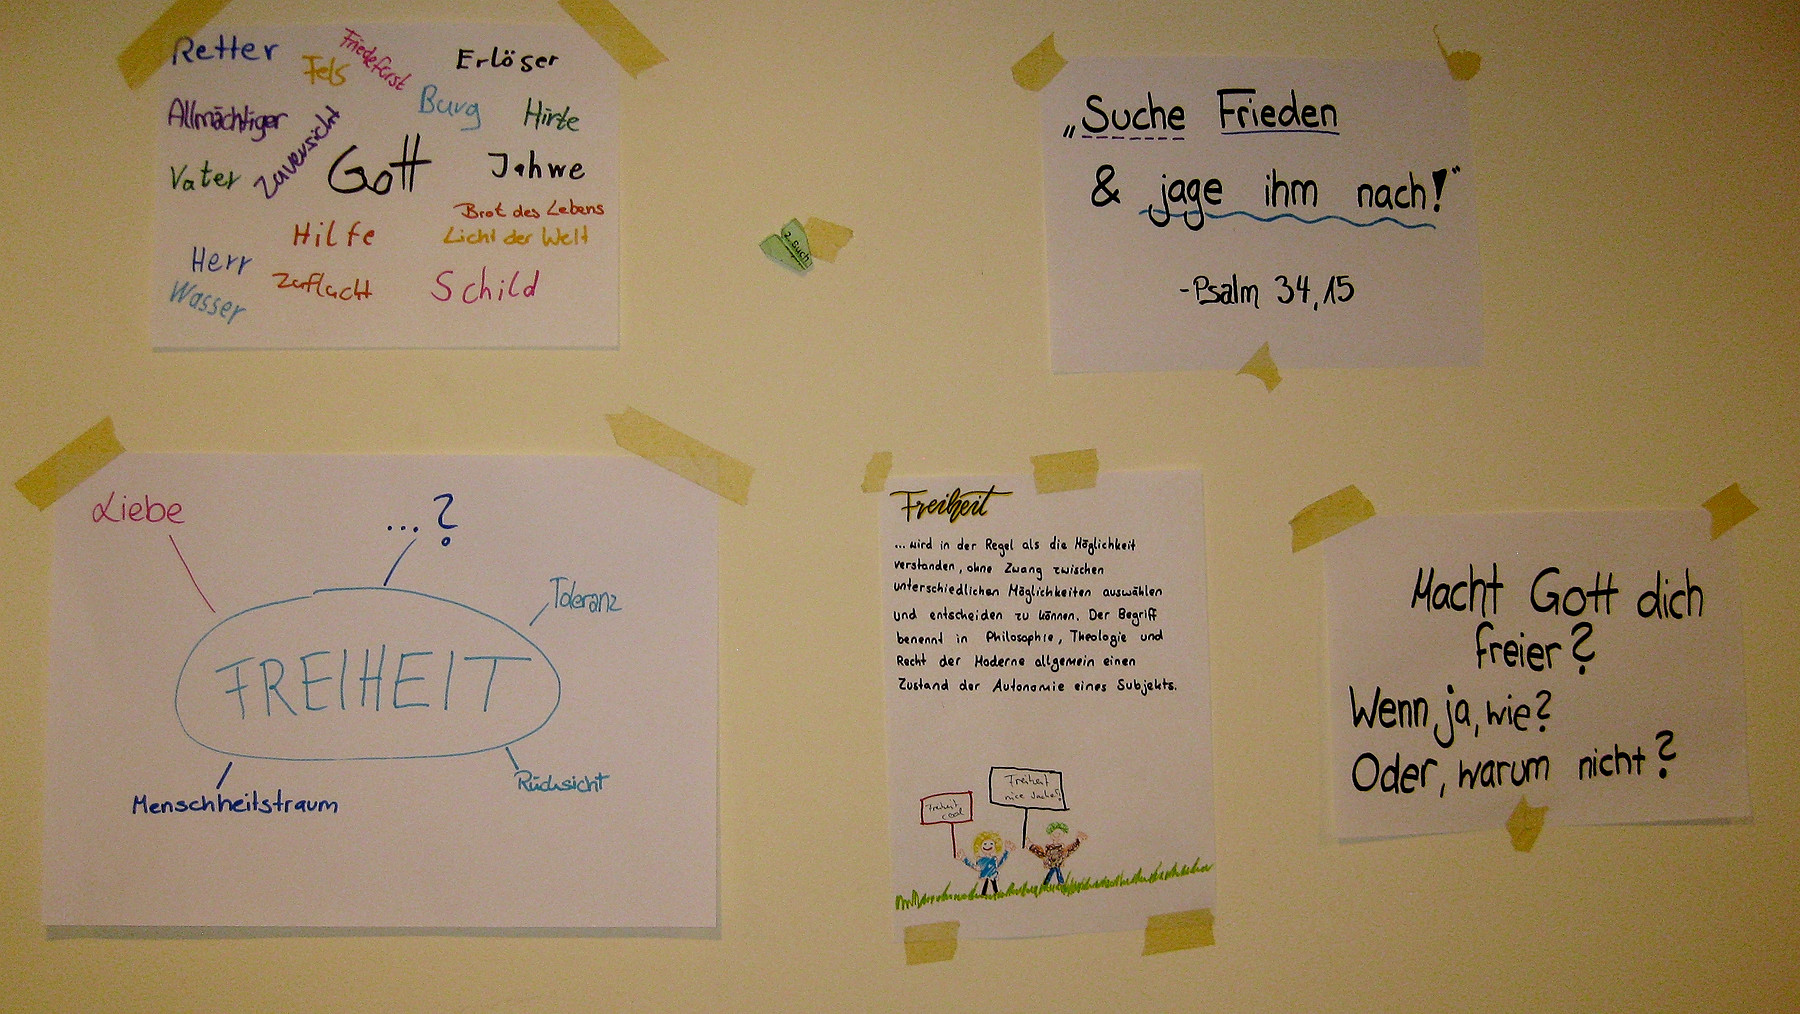 Retter
Fels
Friedefürst
Erlöser
Allmächtiger
Zuversicht
Burg
Hirte
Vater
Gott
Jahwe
Hilfe
Brot des Lebens
Licht der Welt
Herr
Zuflucht
Schild
Wasser
2. Buch
„Suche Frieden
& jage ihm nach!“
-Psalm 34,15
Liebe
...?
Toleranz
FREIHEIT
Menschheitstraum
Rücksicht
Freiheit
...wird in der Regel als die Möglichkeit
verstanden, ohne Zwang zwischen
unterschiedlichen Möglichkeiten auswählen
und entscheiden zu können. Der Begriff
benennt in Philosophie, Theologie und
Recht der Moderne allgemein einen
Zustand der Autonomie eines Subjekts.
Freiheit
cool
Freiheit
nice Sache!
Macht Gott dich
freier?
Wenn ja, wie?
Oder, warum nicht?